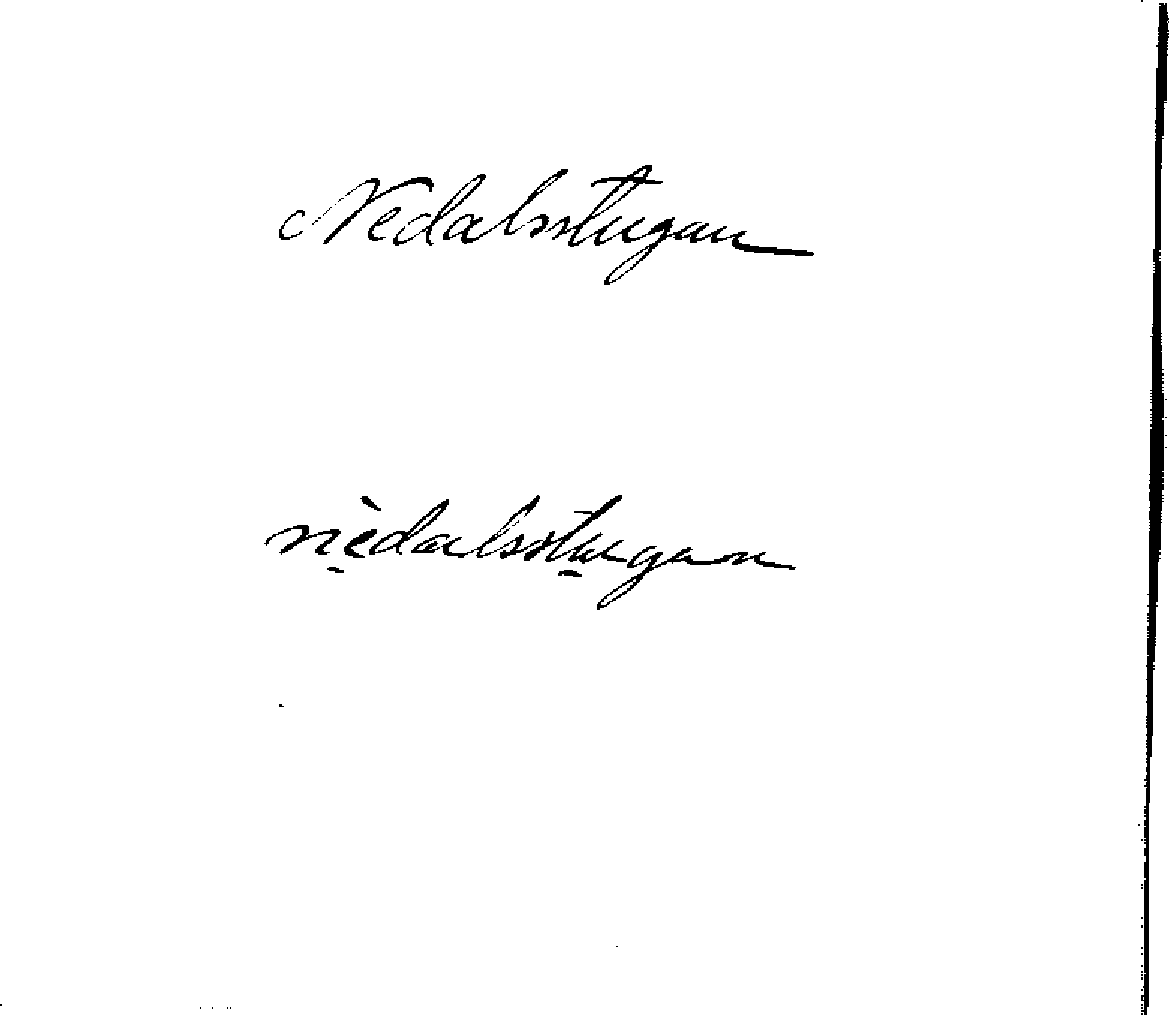 Nedalsstugan
nèdalsstugan